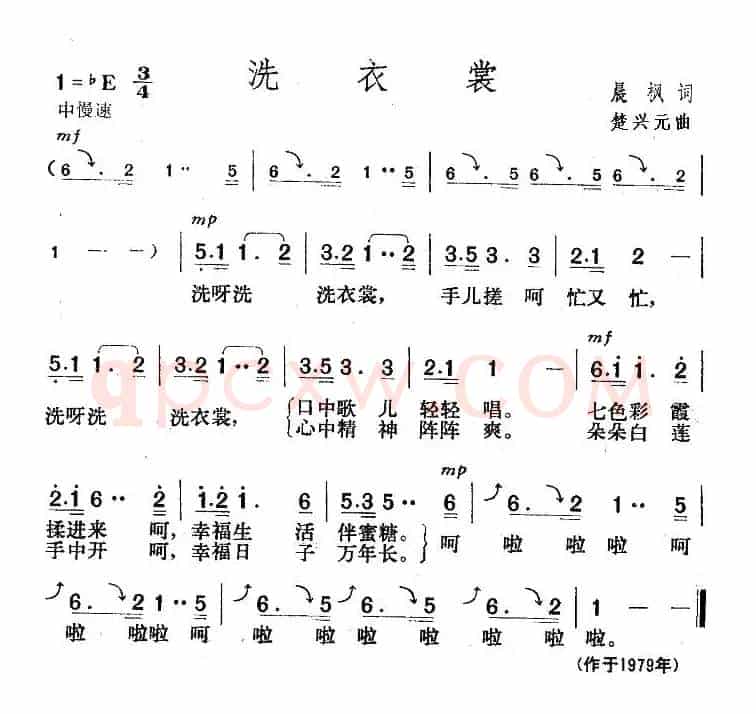 洗衣裳
1=♭E 3/4
中慢速
晨枫词
楚兴元曲
mf
(6. 2 1·· 5 | 6. 2 1·· 5 | 6. 5 6. 5 6. 2 |
mp
1 — —) | 5.1 1. 2 | 3.2 1·· 2 | 3.5 3. 3 | 2.1 2 — |
洗呀洗 洗衣裳, 手儿搓 呵 忙又 忙,
mf
5.1 1. 2 | 3.2 1·· 2 | 3.5 3. 3 | 2.1 1 — | 6.i i. i |
洗呀洗 洗衣裳, {口中歌 儿 轻轻 唱。 七色彩 霞
{心中精 神 阵阵 爽。 朵朵白 莲
mp
2.i 6·· 2 | i.2 i. 6 | 5.3 5·· 6 | 6. 2 1·· 5 |
揉进来 呵, 幸福生 活 伴蜜糖。} 呵 啦 啦 啦 呵
手中开 呵, 幸福日 子 万年长。}
6. 2 1·· 5 | 6. 5 6. 5 | 6. 2 1 — ‖
啦 啦啦 呵 啦 啦 啦 啦 啦 啦 啦。
(作于1979年)
qpcxw.COM